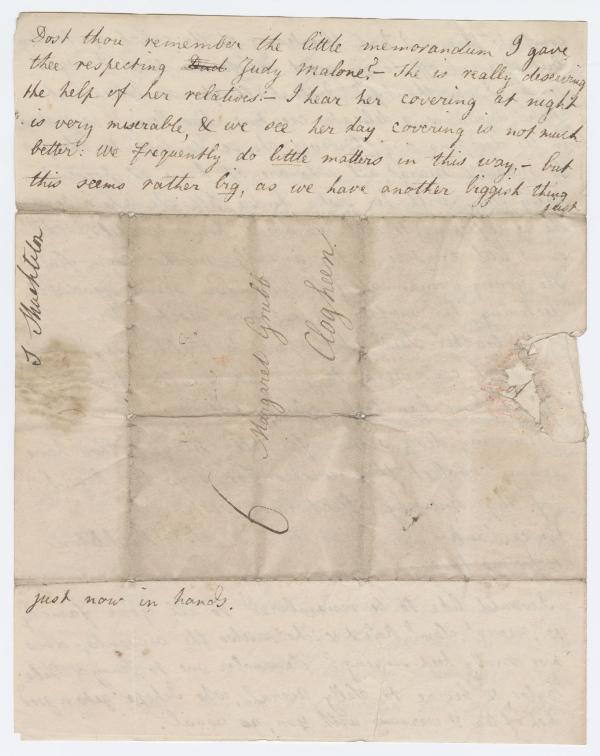 Dost thou remember the little memorandum I gave
thee respecting Judy Malone? – She is really deserving
the help of her relatives: – I hear her covering at night
is very miserable, & we see her day covering is not much
better: we frequently do little matters in this way, – but
this seems rather big, as we have another biggish thing
just
S Shackleton
Margaret Grubb
Clogheen
6
just now in hands.